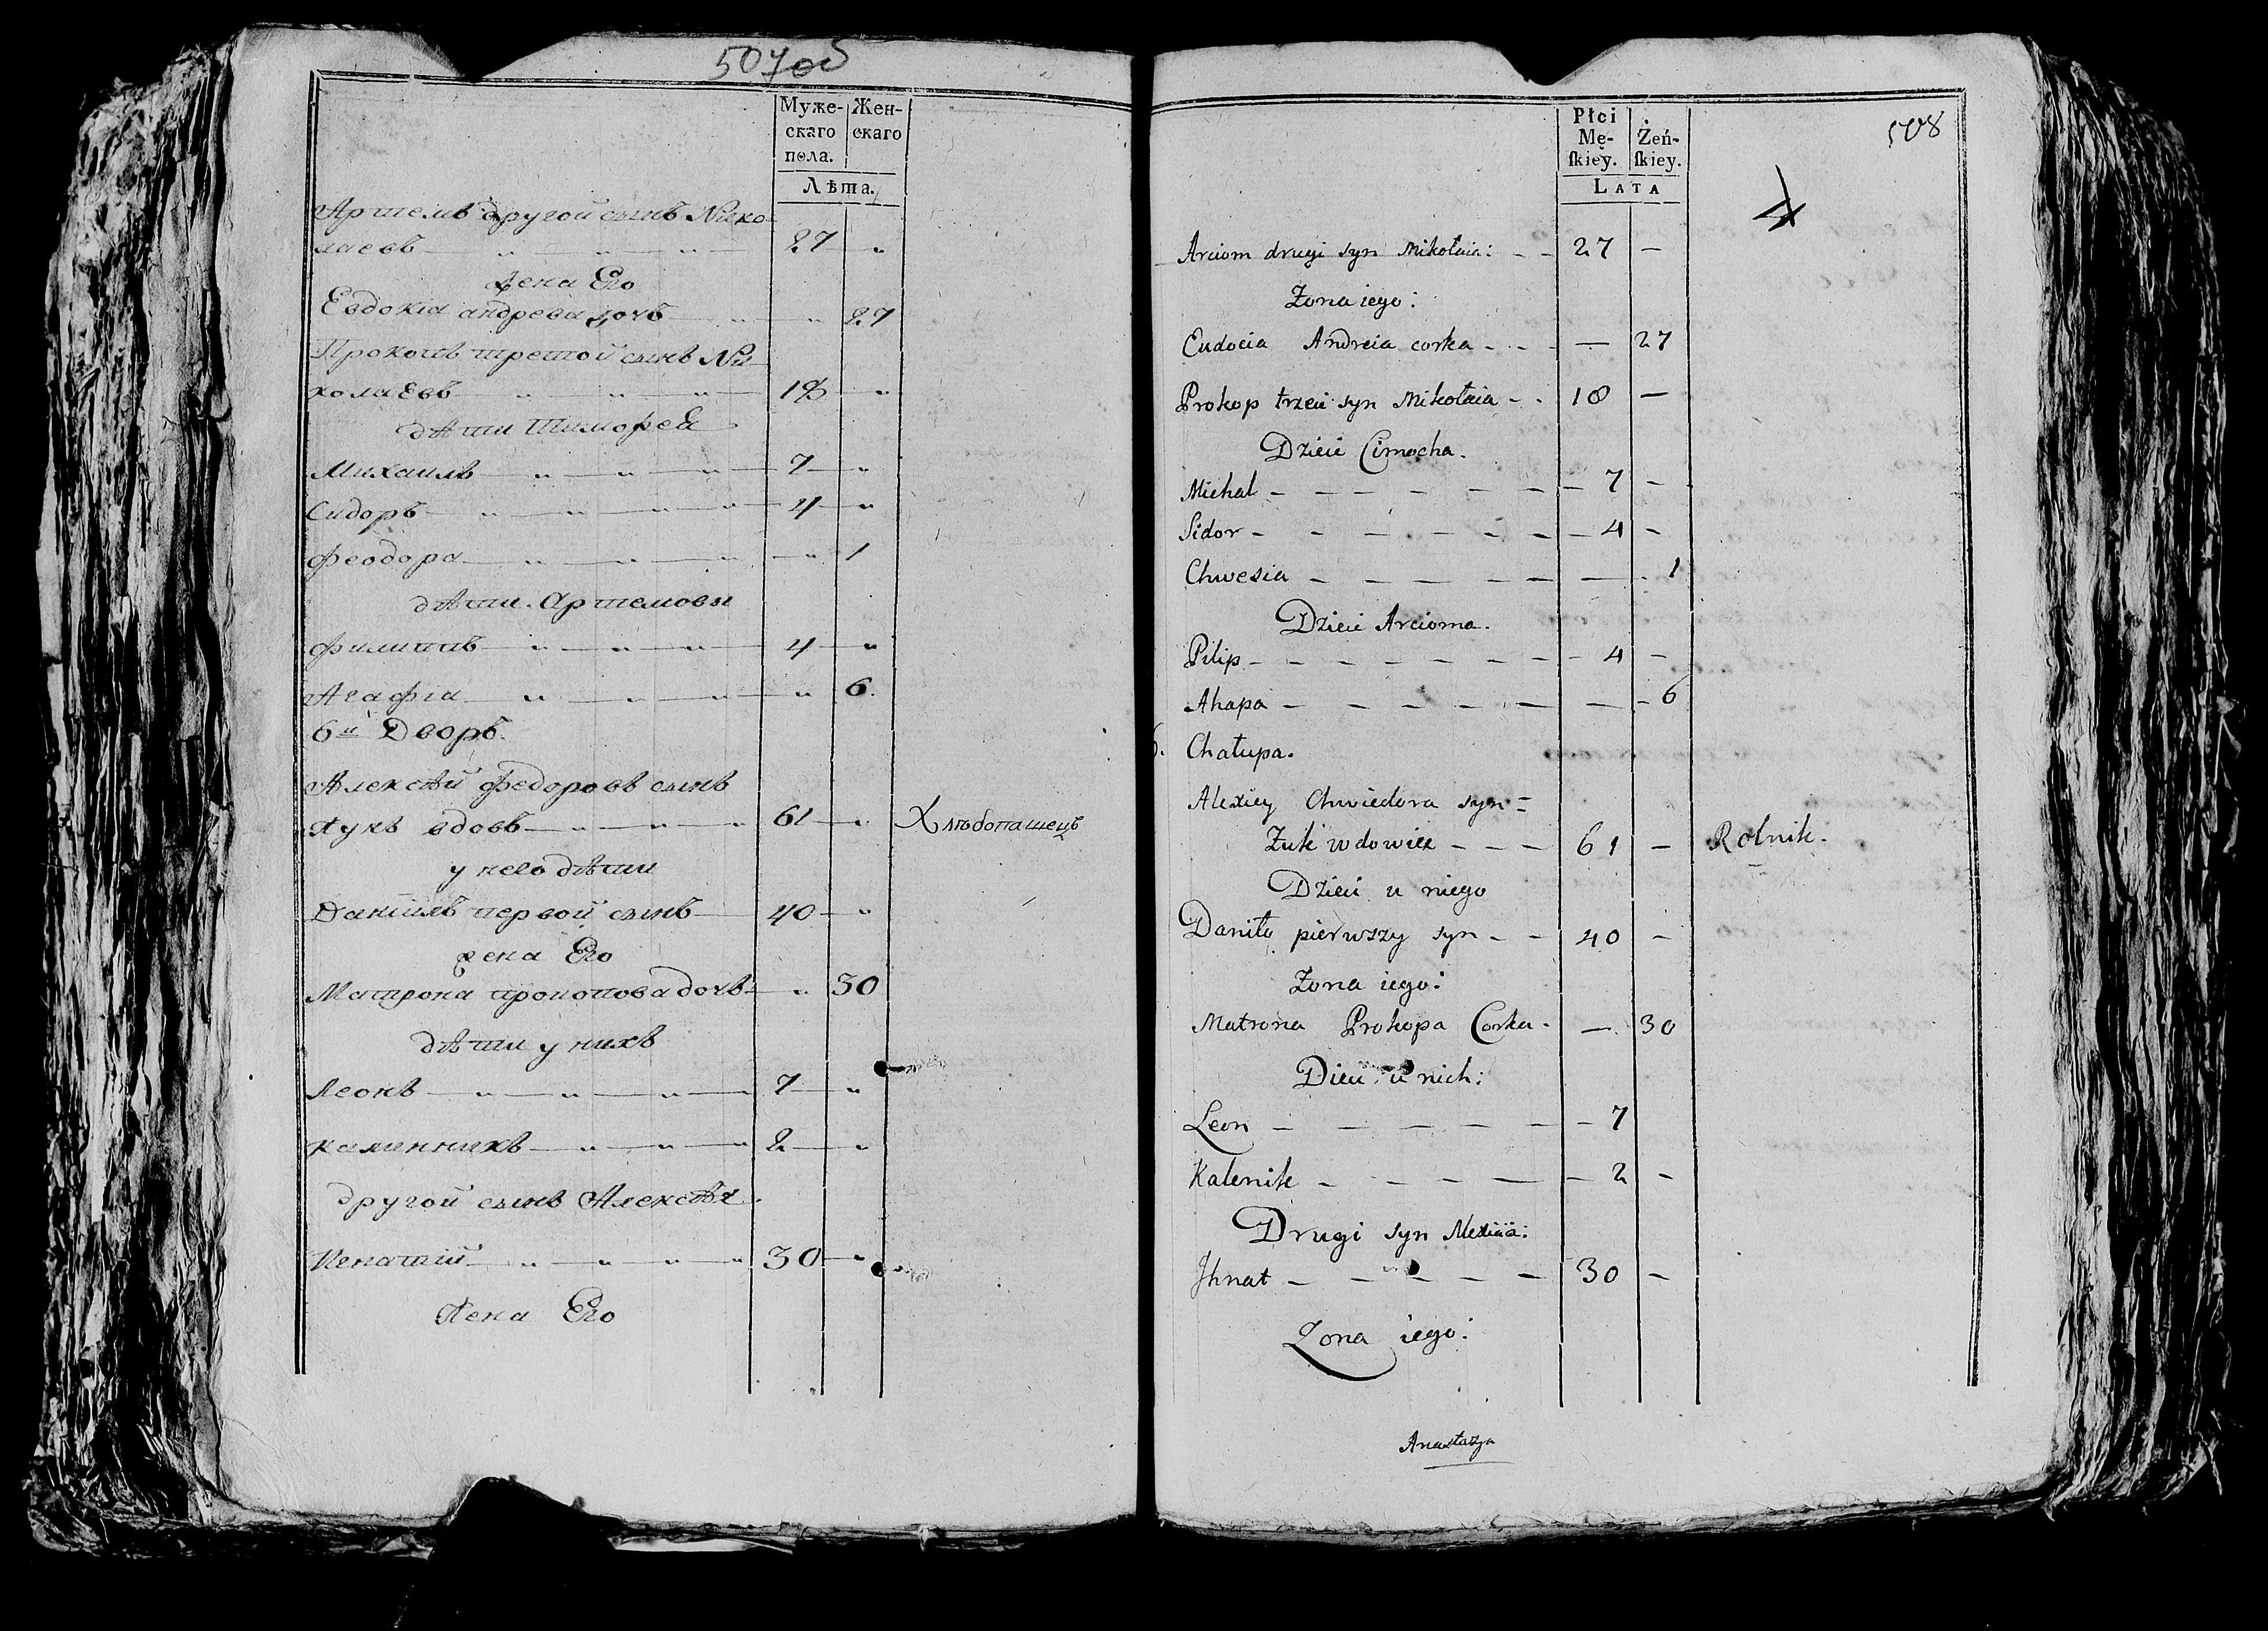 507об
Муже-
скаго
пола.
Жен-
скаго
Лѣта.
Артемъ другой сынъ Нико
лаевъ 27 "
жена Его
Евдокiа андрева дочь " 27
Прокопъ третой сынъ Ни
колаевъ 18 "
дѣти Тимофея
Михаилъ 7 "
Сидоръ 4 "
Феодора " 1
дѣти Артемовы
Филиппъ 4 "
Агафiа " 6.
6й Дворъ.
Алексѣй Федоровъ сынъ
Жукъ вдовъ 61 " Хлѣбопашецъ
у него дѣти
Данiилъ первой сынъ 40 "
жена Его
Матрона прокопова дочь " 30
дѣти у нихъ
Леонъ 7 "
Калинникъ 2 "
другой сынъ Алексѣя
Игнатiй 30 "
Жена Его
508
Płci
Mę-
ſkiey.
Żeń-
ſkiey.
LATA
Arciom drugi syn Mikołaia: 27 —
Zona iego:
Eudocia Andreia corka — 27
Prokop trzeci syn Mikołaia 18 —
Dzieci Cimocha.
Michal 7 —
Sidor 4 —
Chwesia — 1
Dzieci Arcioma.
Pilip 4 —
Ahapa — 6
6. Chałupa.
Alexiey Chwiedora syn=
Żuk wdowiec 61 — Rolnik.
Dzieci u niego
Daniło pierwszy syn 40 —
Zona iego:
Matrona Prokopa Corka — 30
Dieci u nich:
Leon 7
Kalenik 2 —
Drugi syn Alexieia:
Jhnat 30 —
Zona iego:
Anastazya